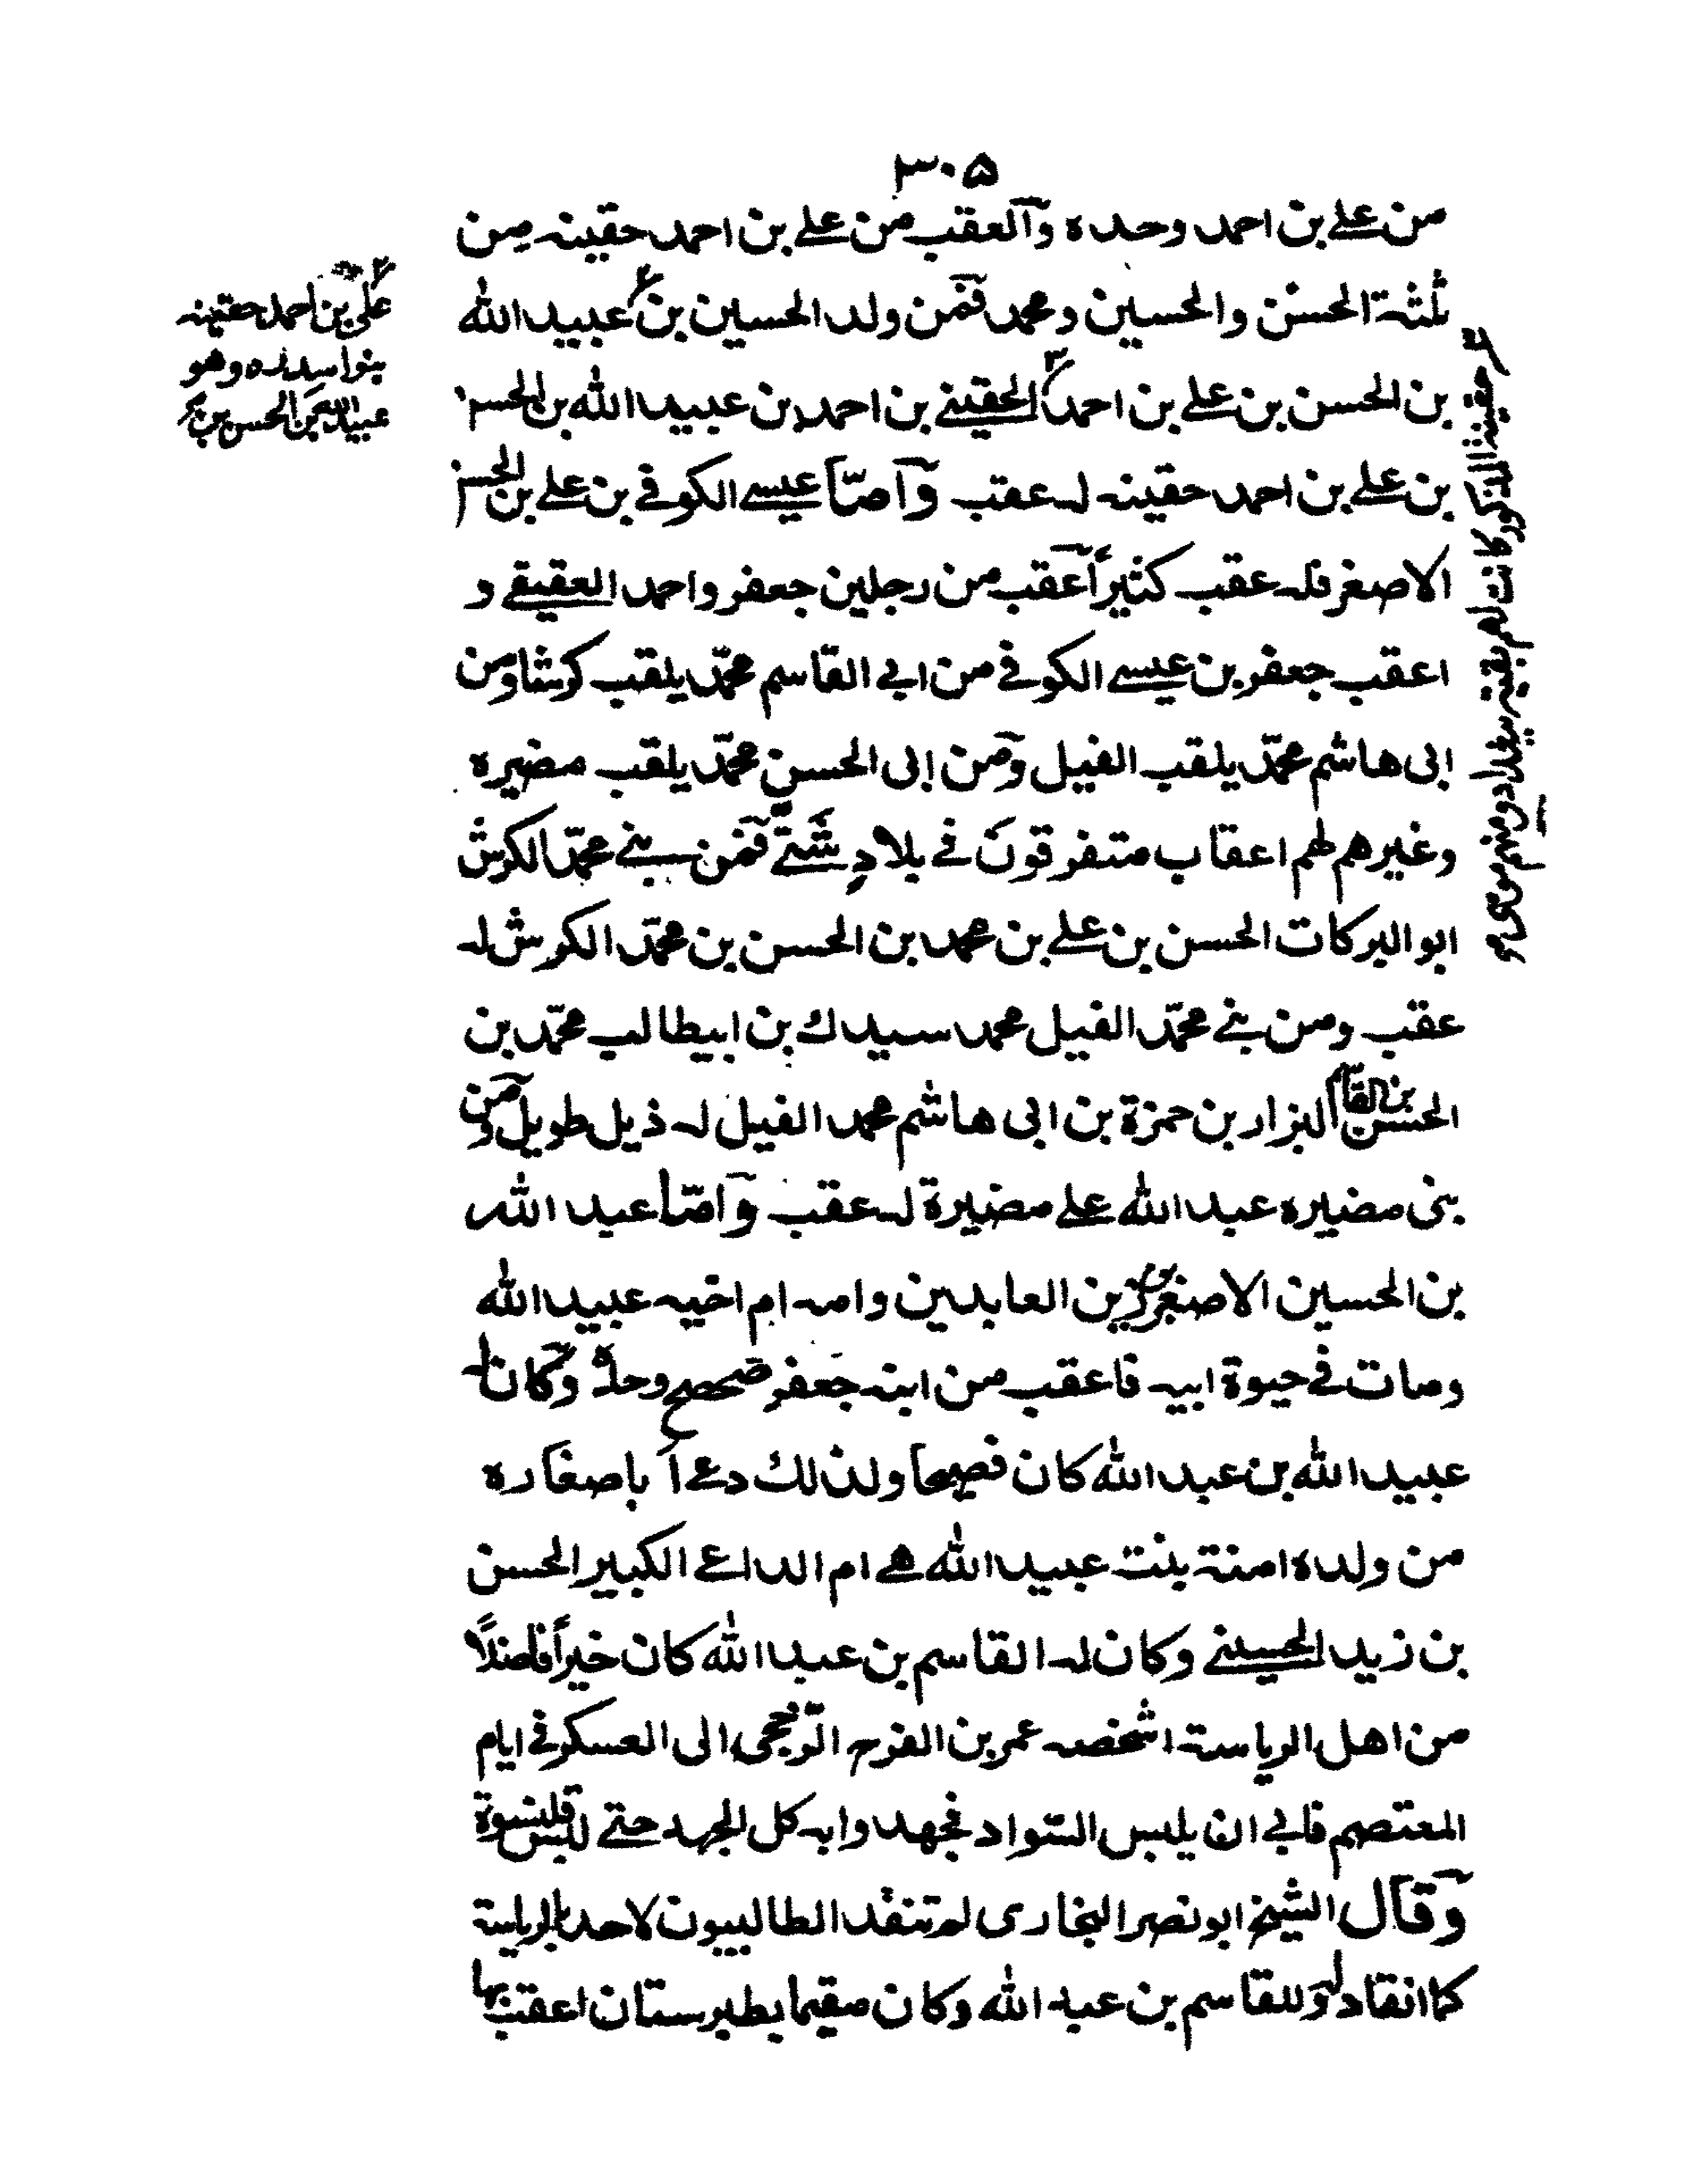 ٣٠۵
من علے بن احمد وحده وآلعقب من علے بن احمد حقينه من
ثلثة الحسن والحسين ومحمد فمن ولد الحسين بن عبيد الله
بن الحسن بن علے بن احمد الحقينے بن احمد بن عبيد الله بن الحسن
بن علے بن احمد حقينه له عقب وآمّا عيسے الكوفے بن علے بن الحسن
الاصغر فله عقب كثيراً آعقب من رجلين جعفر واحمد العقيقے و
اعقب جعفر بن عيسے الكوفے من ابى القاسم محمّد يلقب كرشا ومن
ابى هاشم محمّد يلقب الفيل ومن ابى الحسن محمّد يلقب مضيره
وغيرهم لهم اعقاب متفرقون فے بلادٍ شتّے فمن بنے محمّد الكرش
ابو البركات الحسن بن علے بن محمد بن الحسن بن محمّد الكرش له
عقب ومن بنے محمّد الفيل محمد سيدك بن ابيطالب محمّد بن
الحسن بن القاسم البزار بن حمزة بن ابى هاشم محمد الفيل له ذيل طويل ومن
بنى مضيره عبد الله علے مضيرة له عقب وآمّا عبد الله
بن الحسين الاصغر بن زين العابدين وامه ام اخيه عبيد الله
ومات فے حيوة ابيه فاعقب من ابنه جعفر صحصح وحده وكان له
عبيد الله بن عبد الله كان فصيحا ولذلك دعے باصغاره
من ولده امنة بنت عبيد الله هے ام الداعے الكبير الحسن
بن زيد الحسينے وكان له القاسم بن عبد الله كان خيراً فاضلاً
من اهل الرياسة اشخصه عمر بن الفرج الرّخجى الى العسكر فے ايام
المعتصم فابى ان يلبس السّواد فجهدوا به كل الجهد حتے لبس قلنسوة
وقال الشيخ ابو نصر البخارى لم تنقد الطالبيون لاحد بالرياسة
كما انقادوا للقاسم بن عبد الله وكان مقيما بطبرستان اعقب بها
علے بن احمد حقينه
بنوا سدره وهو
عبيد الله بن الحسن بن
حقينة المذكور كانت لهم بقية ببغداد ومنهم موسى